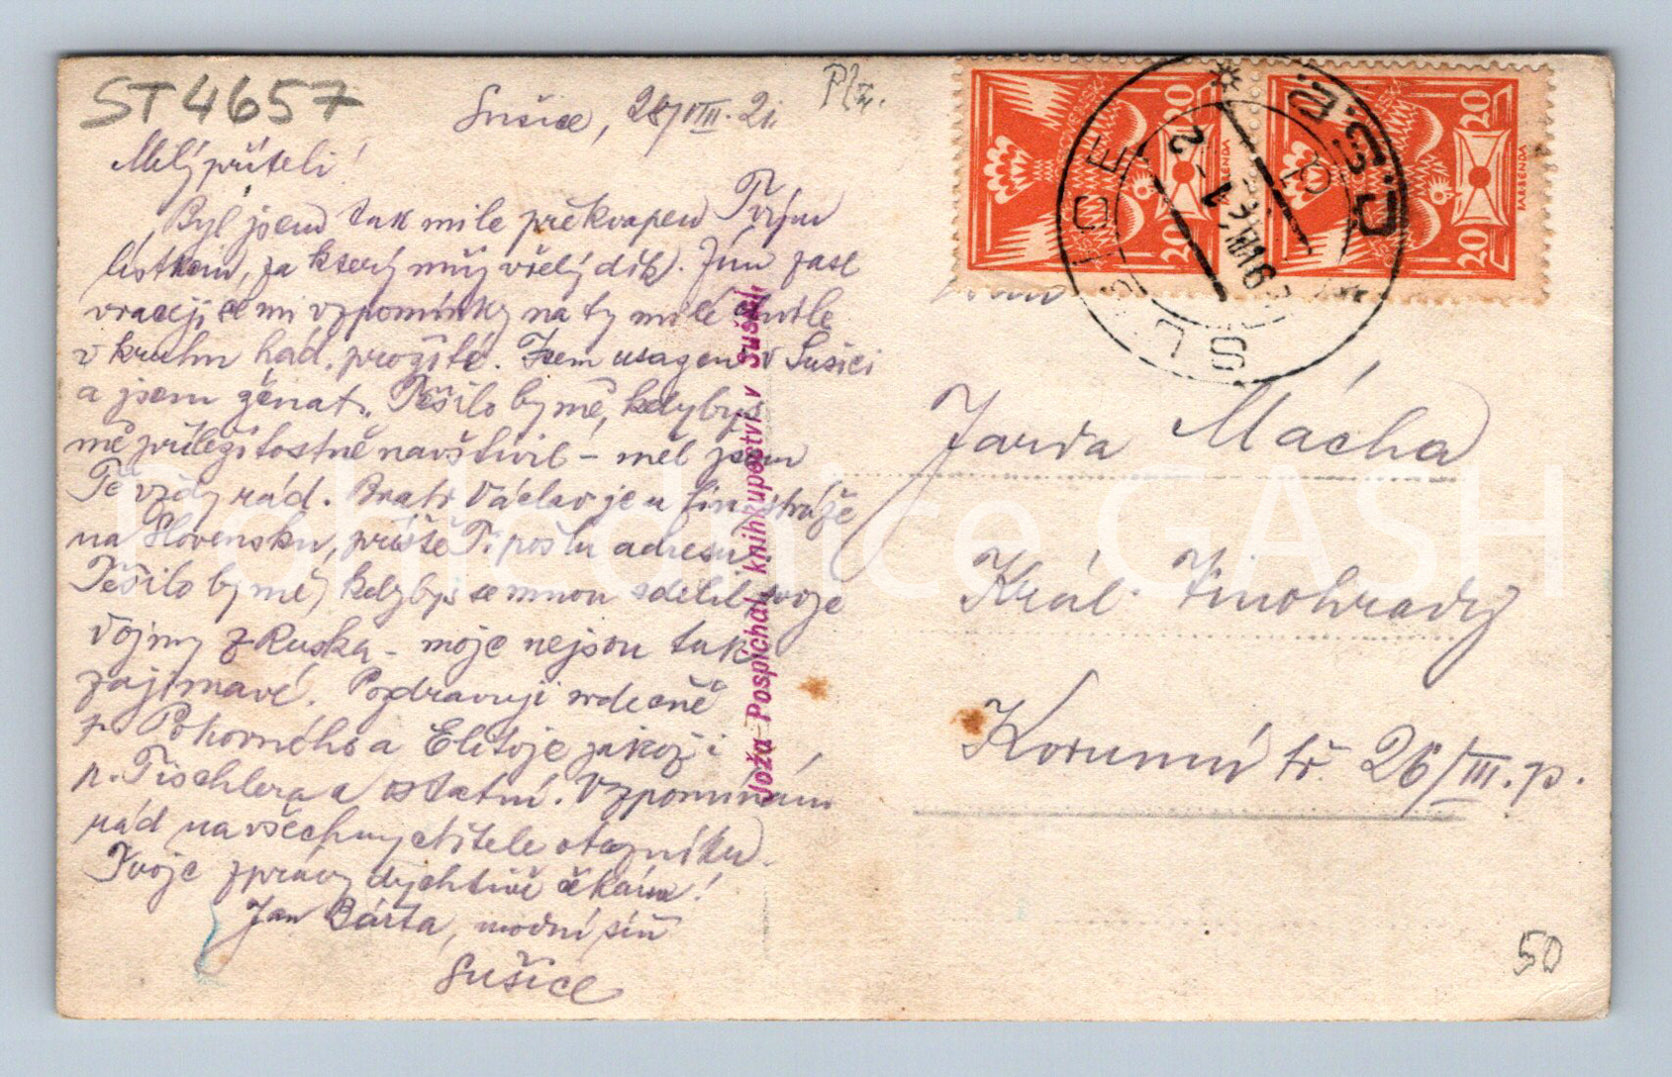 ST4657
Plz.
Sušice, 28/VIII. 21.
Milý příteli!
Byl jsem tak mile překvapen Tvým
lístkem, za který můj vřelý dík. Jím zase
vracejí se mi vzpomínky na ty milé chvíle
v kruhu had. prožité. Jsem usazen v Sušici
a jsem ženat. Těšilo by mě, kdybys
mě příležitostně navštívil – měl jsem
Tě vždy rád. Bratr Václav je u fin. stráže
na Slovensku, příště Ti pošlu adresu.
Těšilo by mě, kdybys se mnou sdělil svoje
dojmy z Ruska – moje nejsou tak
zajímavé. Pozdravuji srdečně
p. Pokorného a jakož i
p. Tischlera a ostatní. Vzpomínám
rád na všechny ctitele otazníku.
Tvoje zprávy dychtivě čekám!
Jan Bárta, modní síň
Sušice
Joža Pospíchal, knihkupectví v Sušici
20 20
20 20
FASENDA
FASENDA
SUŠICE
Č.S.P.
Jarda Mácha
Král. Vinohrady
Korunní tř. 26/III. p.
50
Pohlednice GASH